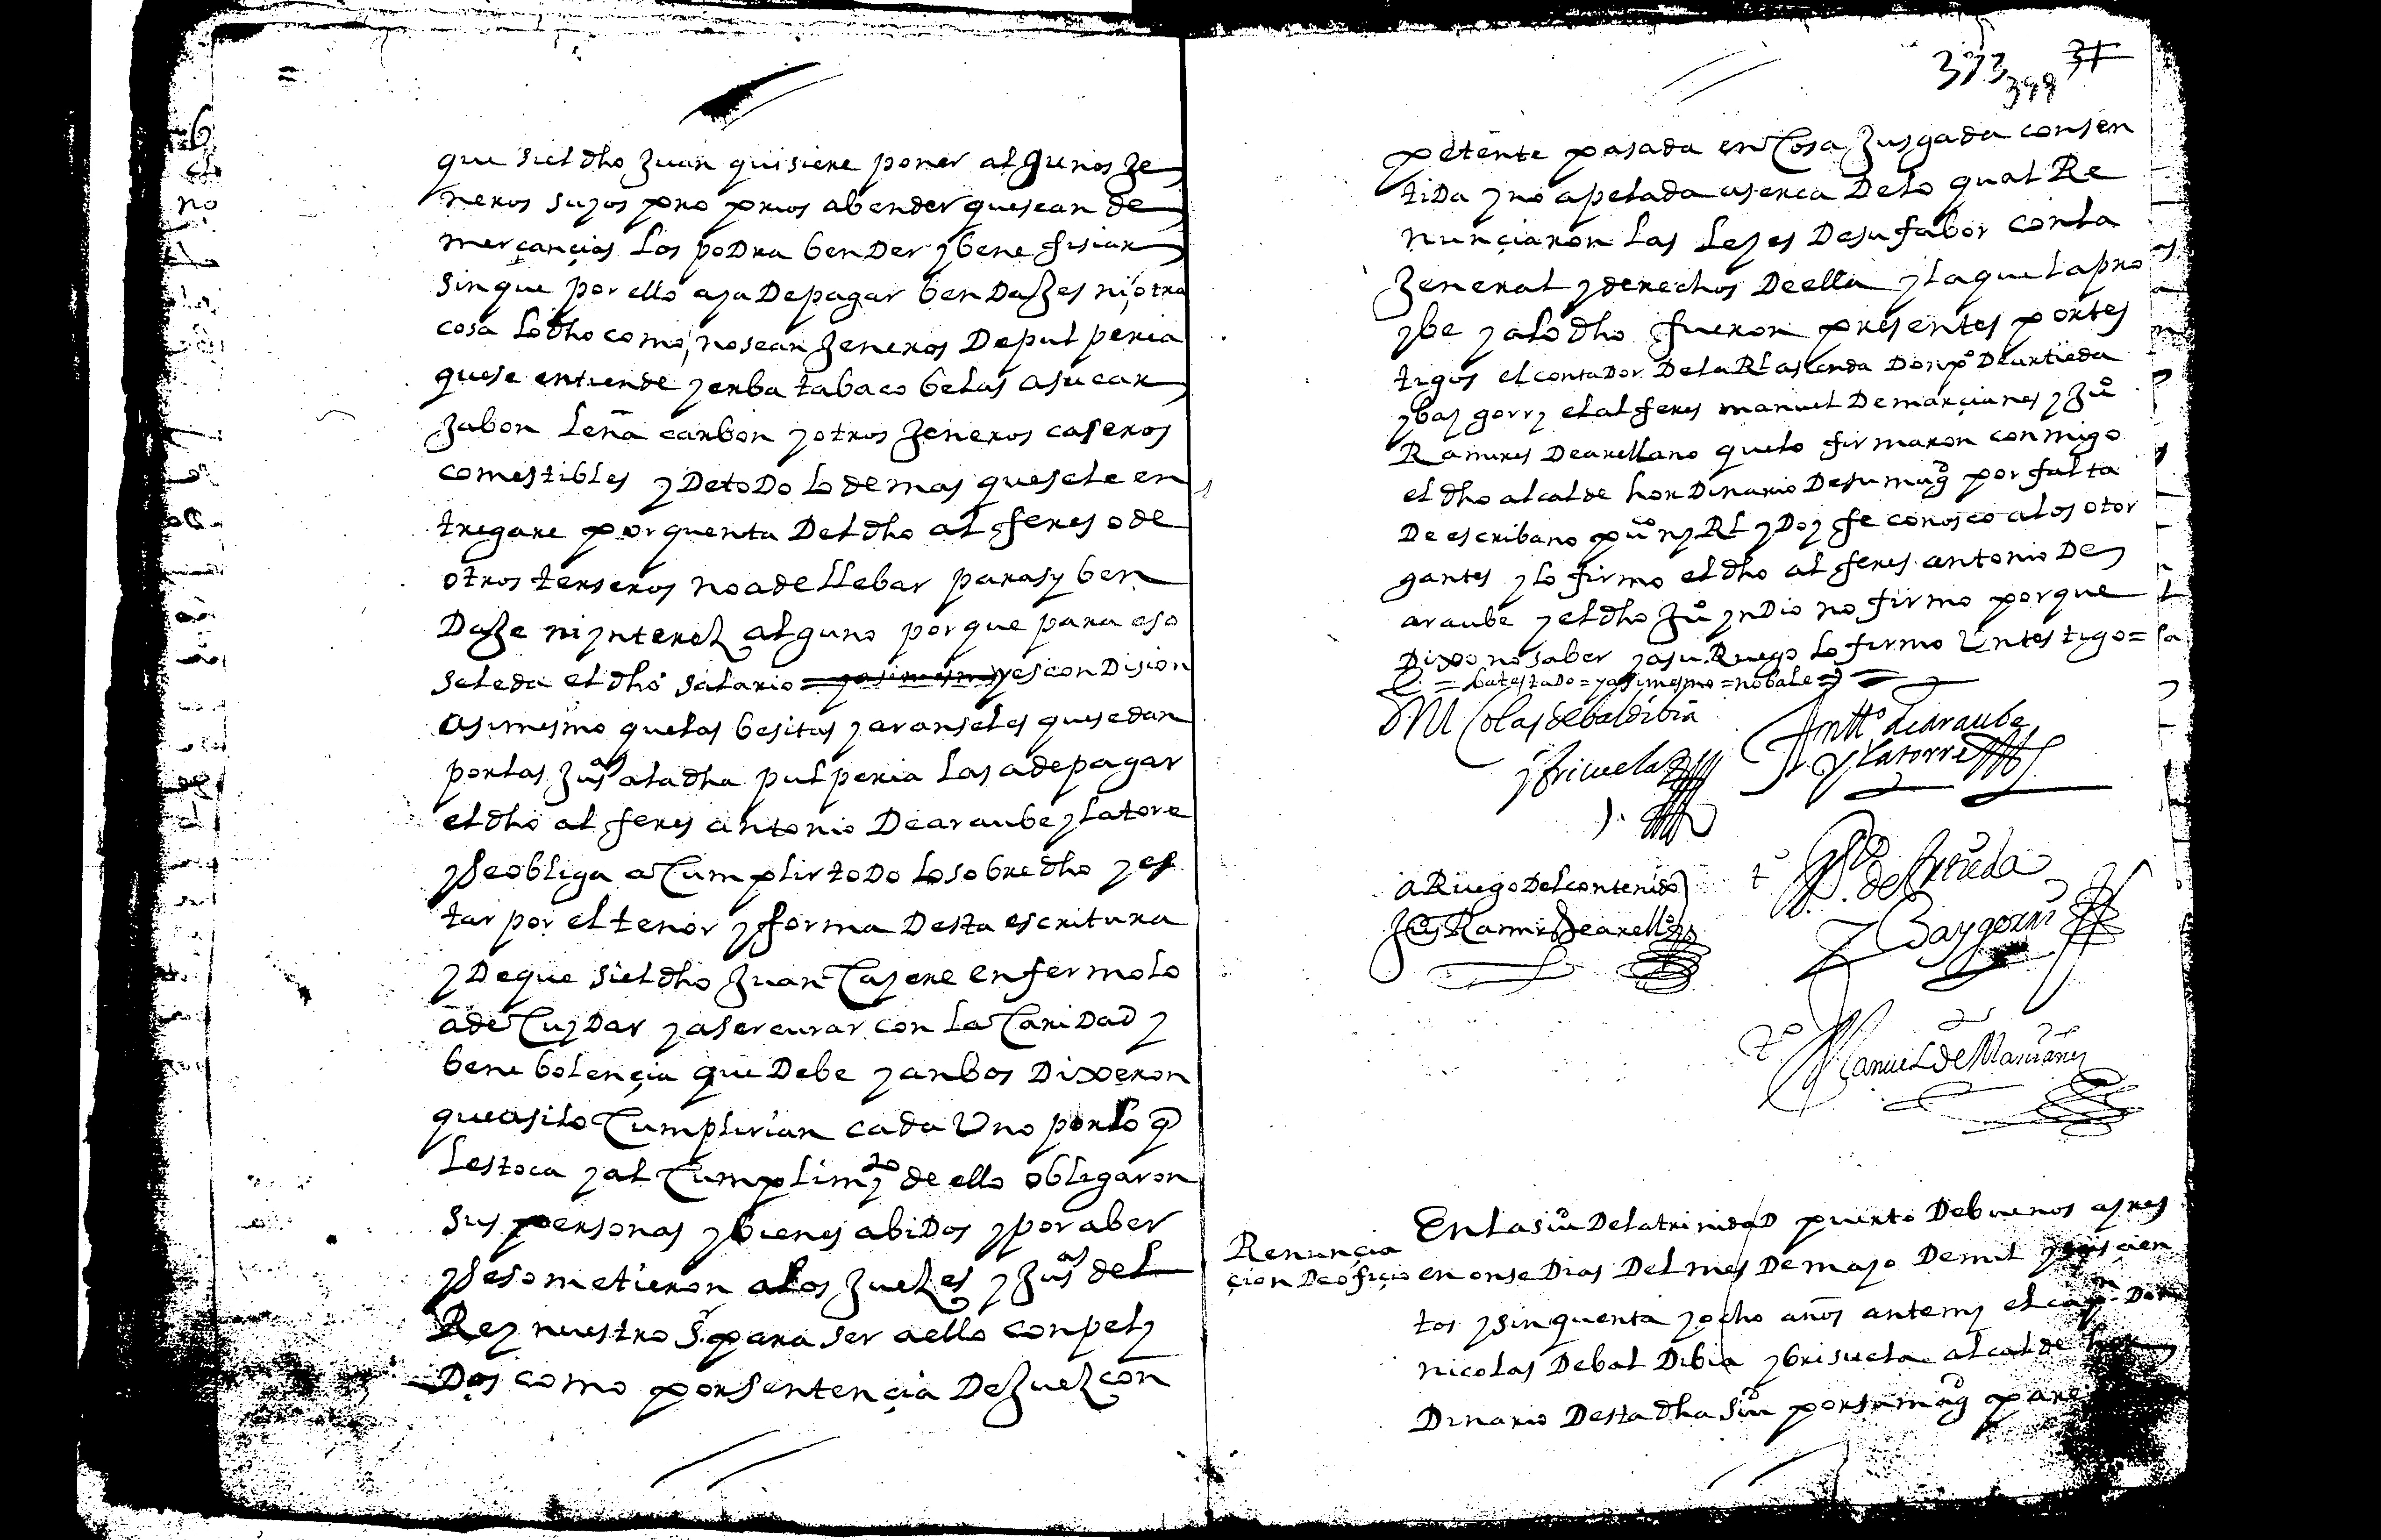 que si el dho Juan quisiere poner algunos je
neros suyos pro prios a bender que sean de
merçançias los podra bender y bene fisiar
sin que por ello aya de pagar bendajes ni otra
cosa lo dho como no sean jeneros de pulperia
que se entiende yerba tabaco belas asucar
jabon leña carbon y otros jeneros caseros
comestibles y de todo lo demas que se le en
tregare por quenta del dho alferes o de
otros terseros no a de llebar para sy ben
daje ni ynterez alguno por que para eso
se le da el dho salario = y asimismo y es con disión
asimesmo que las besitas y aranseles que se dan
por las Jusas a la dha pulperia las a de pagar
el dho alferes antonio de araube y latore
y se obliga a cumplir todo lo sobredho y es
tar por el tenor y forma desta escritura
y de que si el dho Juan cayere enfermo lo
a de cuydar y aser curar con la caridad y
bene bolençia que debe y anbos dixeron
que asi lo cumplirian cada uno por lo q
les toca y al cumplimyto de ello obligaron
sus personas y bienes abidos y por aber
y se sometieron a los juezes y Jusas del
Rey nuestro Sr para ser a ello conpely
dos como por sentençia de juez con
373 399 37
petente pasada en cosa jusgada consen
tida y no apelada aserca de lo qual Re
nunçiaron las leyes de su fabor con la
jeneral y derechos de ella y la que la pro
ybe y a lo dho fueron presentes por tes
tigos el contador de la Rl asienda Don po de urtieda
y bay gorry el alferes manuel de marçianes y Juo
Ramires de arellano que lo firmaron conmigo
el dho alcalde hordinario de su magd por falta
de escribano puco ny Rl y doy fe conosco a los otor
gantes y lo firmo el dho alferes antonio de
araube y el dho Juo yndio no firmo porque
dixo no saber y a su Ruego lo firmo un testigo =
= testado = y asimesmo = no bale =
D. Nicolas de baldibia
y bricuela
Antto de araube
y latorre
a Ruego del contenido
Ju Ramirs de arello
to Po de Urtieda
y Baygorri
to Manuel de Marcianes
Renunçia
çion de ofiçio
En la siud de la trinidad puerto de buenos ayres
en onse dias del mes de mayo de mil y seis cien
tos y sinquenta y ocho años ante my el capn Don
nicolas de bal dibia y brisuela alcalde hor
dinario desta dha siud por su magd pare